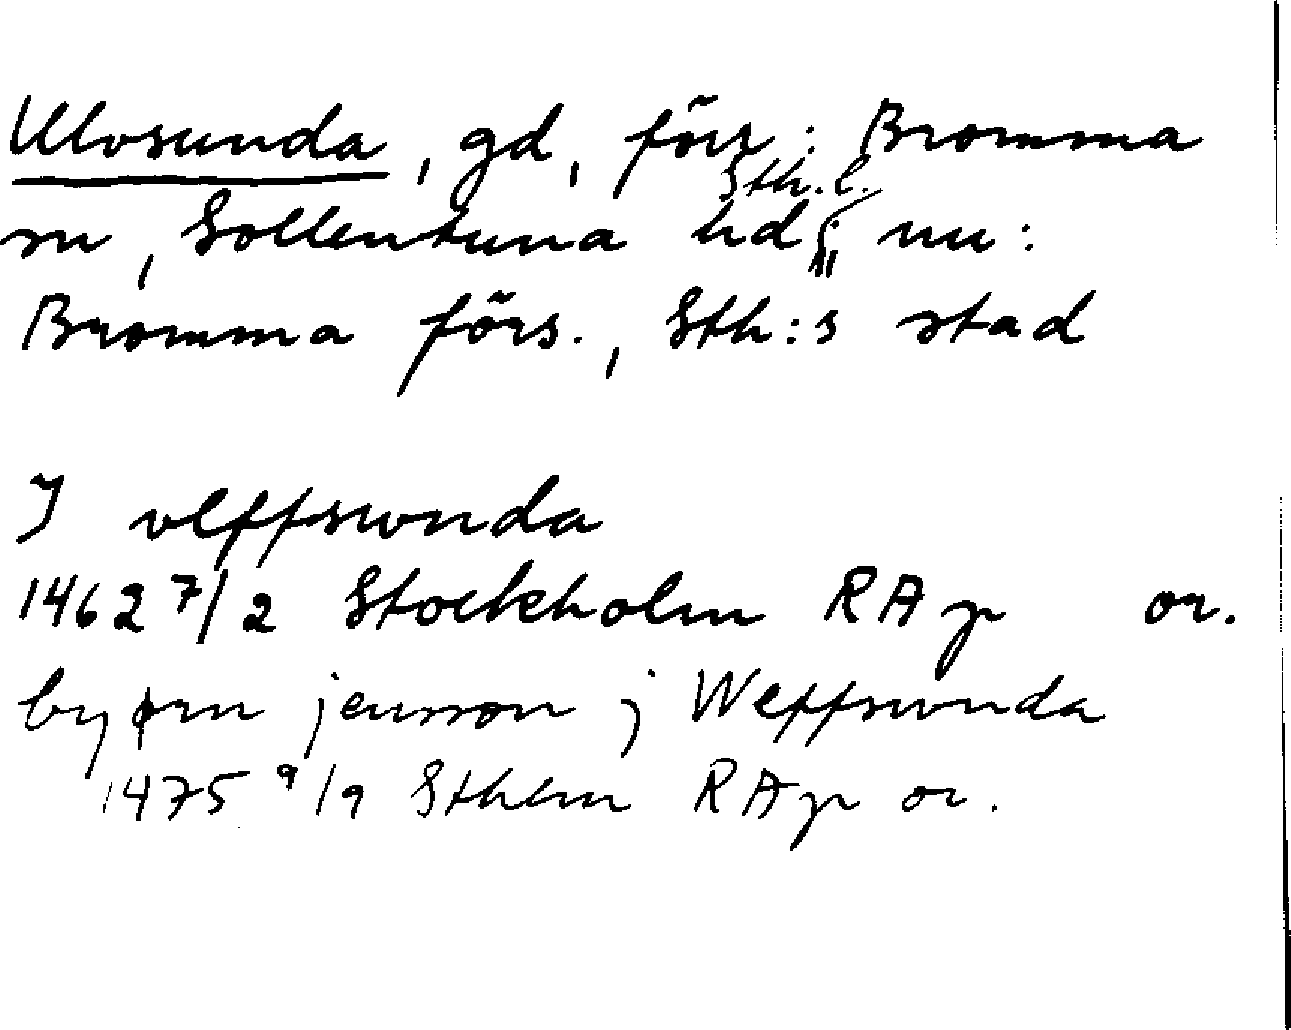 Ulvsunda, gd, förr: Bromma
sn, Sollentuna hd, Sth.l.; nu:
Bromma förs., Sth:s stad
J vlffswnda
1462 7/2 Stockholm RAp or.
byørn jensson j Wlffswnda
1475 9/9 Sthlm RAp or.